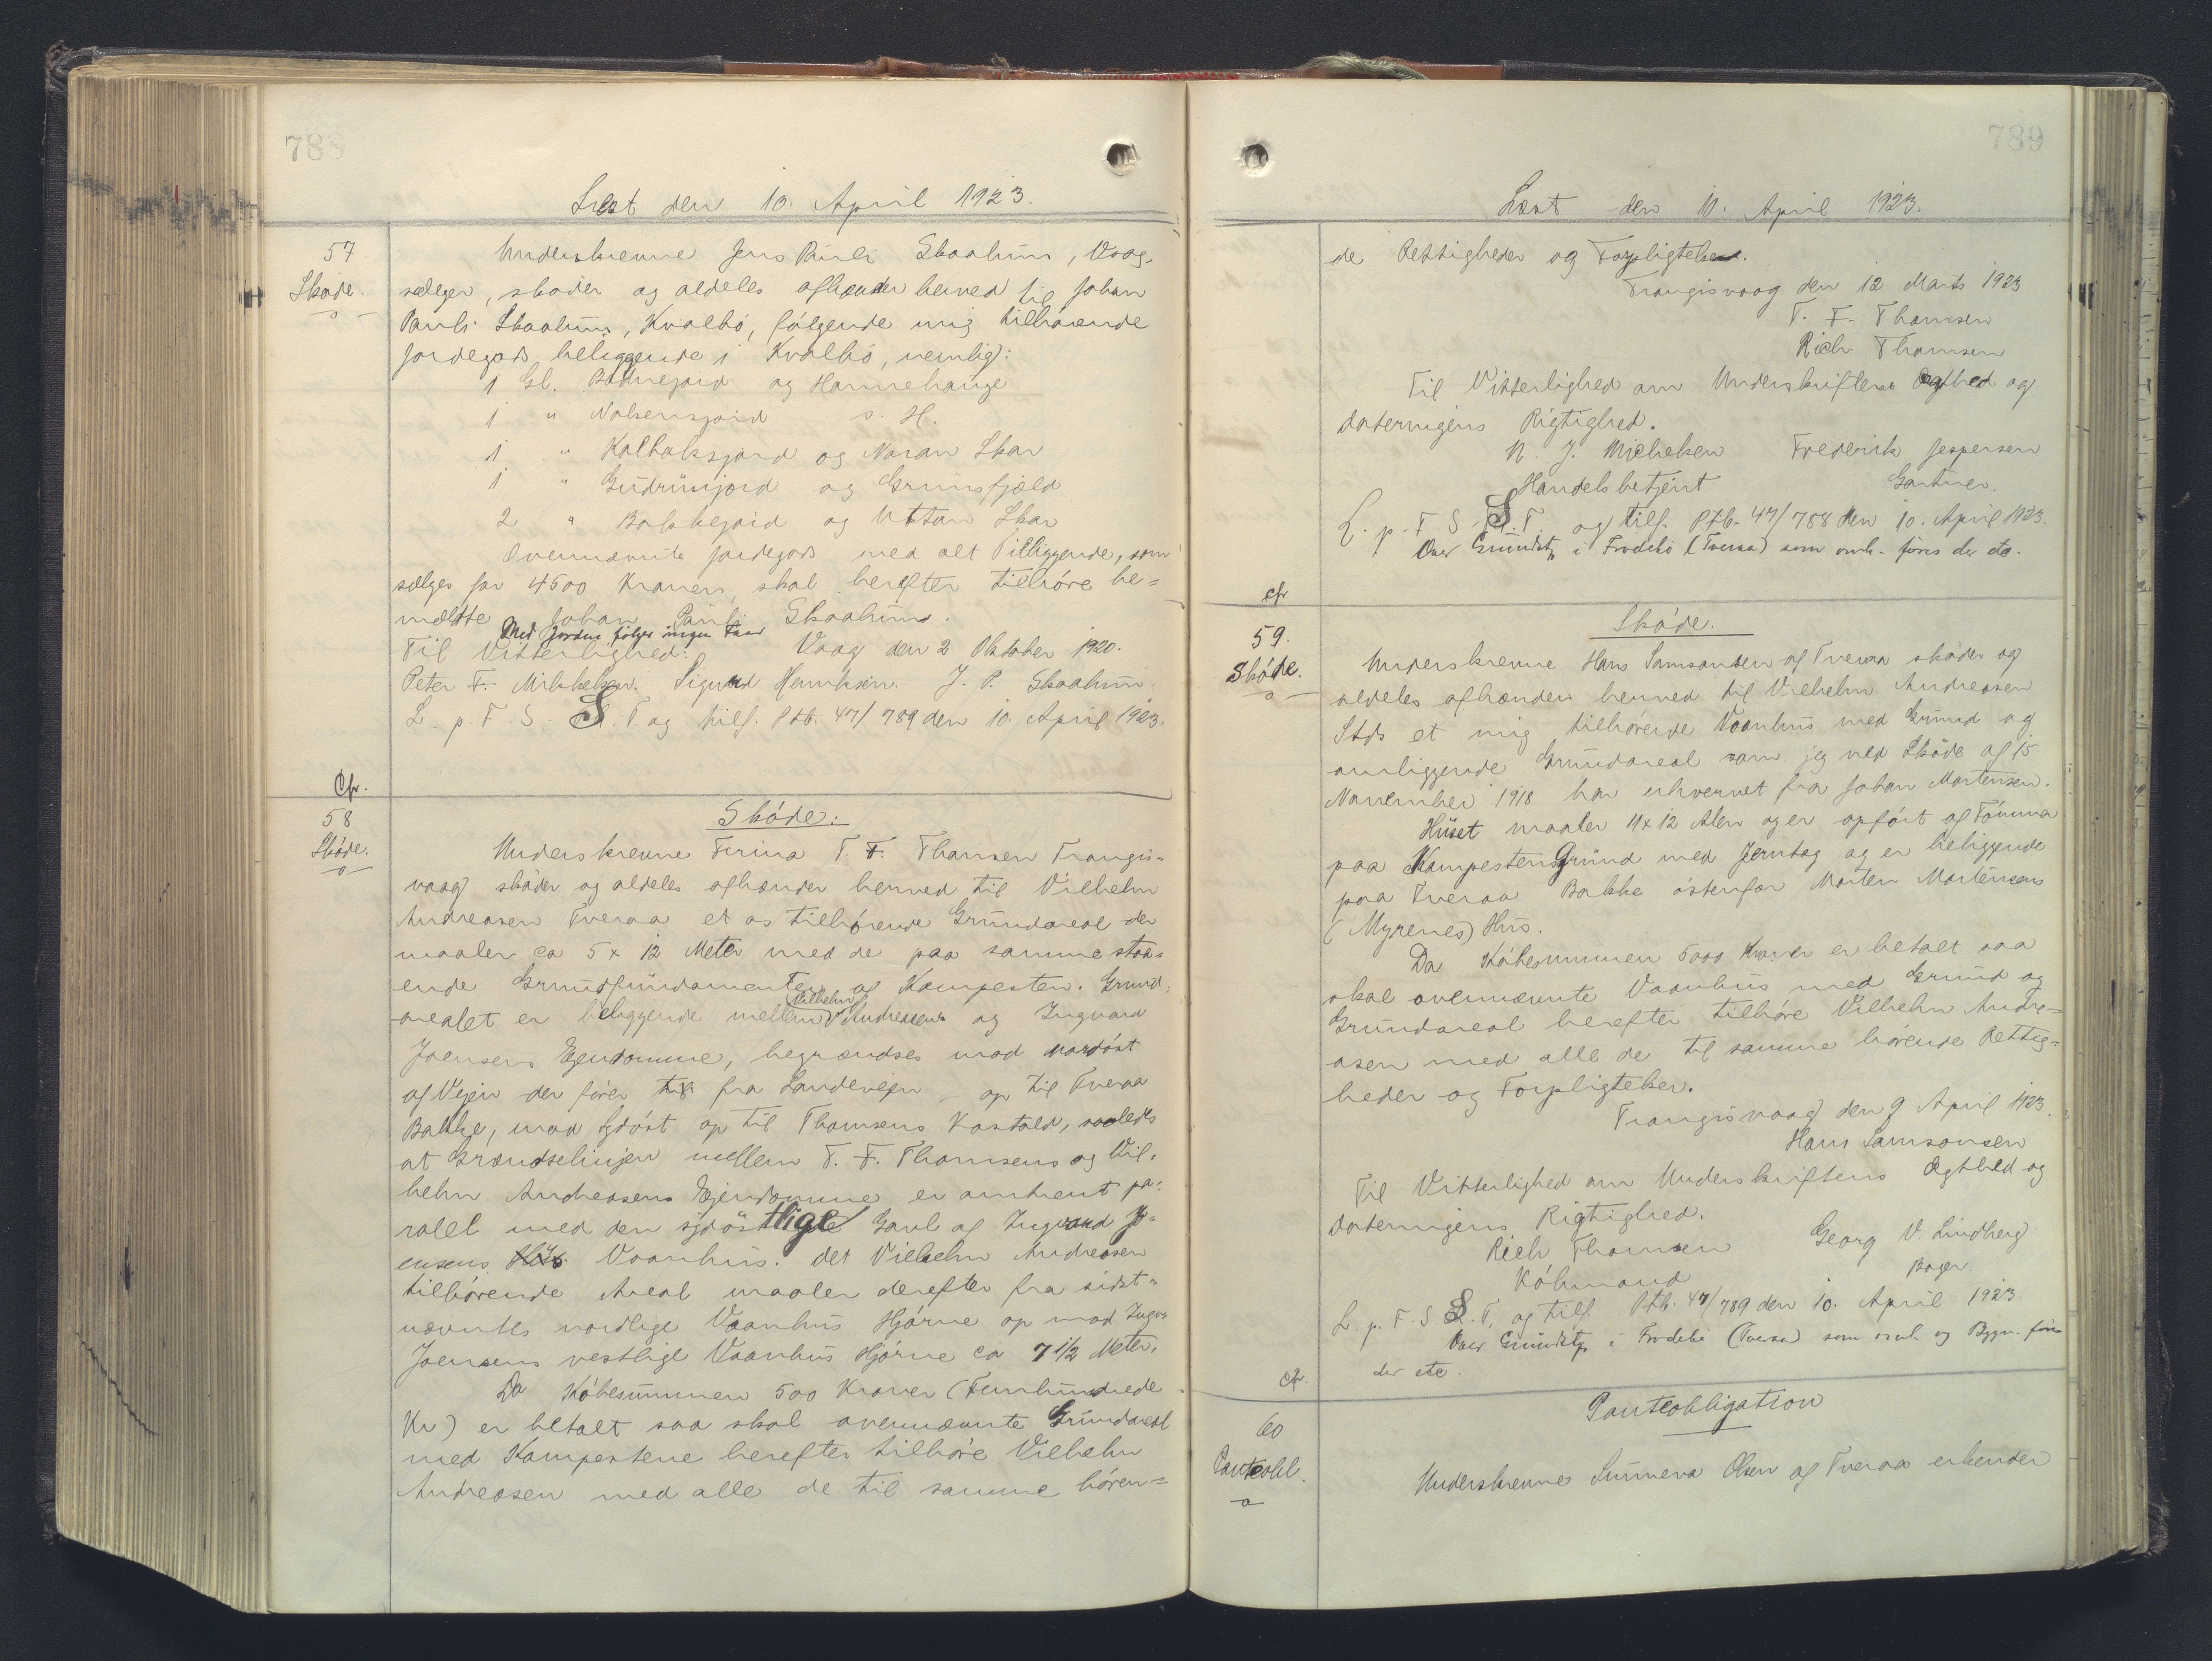 788
Læst den 10. April 1923.
57
Skøde.
Underskrevne Jens Pauli Skaalum, Vaag,
sælger, skøder og aldeles afhænder herved til Johan
Pauli Skaalum, Kvalbö, følgende mig tilhørende
Jordegods beliggende i Kvalbö, nemlig:
1 Gl. og Hamrehauge
1 " Nolsensjord s. H.
1 " Kolbaksjord og Noran Skar
1 " Gudrunjord og Grimsfjæld
2 " og Uttan Skar
Ovennævnte Jordegods med alt Tilliggende, som
sælges for 4500 Kroner, skal herefter tilhøre be=
meldte Johan Pauli Skaalum.
Med Jorden følger ingen Faar
Til Vitterlighed: Vaag den 2 Oktober 1920.
Peter F. Mikkelsen. Sigurd Henriksen. J. P. Skaalum.
L. p. F. S. S. T. og tilf. Ptb. 47/789 den 10. April 1923.
Cfr.
58
Skøde.
Skøde.
Underskrevne Firma T. F. Thomsen Trangis=
vaag skøder og aldeles afhænder herved til Vilhelm
Andreasen Tveraa et os tilhørende Grundareal der
maaler ca 5 x 12 Meter med de paa samme staa=
ende Grundfundamenter af Kampesten. Grund=
arealet er beliggende mellem Vilhelm Andreasens og Ingvard
Joensens Ejendomme, begrændses mod nordöst
af Vejen der fører til fra Landevejen op til Tveraa
Bakke, mod Sydöst op til Thomsens Kostald, saaledes
at Grændselinjen mellem T. F. Thomsens og Vil=
helm Andreasens Ejendomme er omtrent pa=
rallel med den sydöstlige Gavl af Ingvard Jo=
ensens Hus Vaanhus. det Vilhelm Andreasen
tilhørende Areal maaler derefter fra sidst=
nævntes nordlige Vaanhus Hjørne op mod Ingv.
Joensens vestlige Vaanhus Hjørne ca 7 1/2 Meter.
Da Købesummen 500 Kroner (Femhundrede
Kr) er betalt saa skal ovennævnte Grundareal
med Kampestene herefter tilhøre Vilhelm
Andreasen med alle de til samme hören=
789
Læst den 10. April 1923.
de Rettigheder og Forpligtelser.
Trangisvaag den 12 Marts 1923
T. F. Thomsen
Rich. Thomsen
Til Vitterlighed om Underskriftens Ægthed og
Dateringens Rigtighed.
N. J. Michelsen Frederik Jespersen
Handelsbetjent Gartner.
L. p. F. S. S. T. og tilf. Ptb. 47/788 den 10. April 1923.
Over Grundst. i Frodebö (Tveraa) som omh. føres der etc.
cfr
59.
Skøde.
Skøde.
Underskrevne Hans Samsonsen af Tveraa skøder og
aldeles afhænder herved til Vilhelm Andreasen
Stds et mig tilhørende Vaanhus med Grund og
omliggende Grundareal som jeg ved Skøde af 15
November 1918 har erhvervet fra Johan Mortensen.
Huset maaler 11 x 12 Alen og er opført af Tömmer
paa Kampestensgrund med Jerntag og er beliggende
paa Tveraa Bakke östenfor Morten Mortensens
(Myrenes) Hus.
Da Købesummen 5000 Kroner er betalt saa
skal ovennævnte Vaanhus med Grund og
Grundareal herefter tilhøre Vilhelm Andre=
asen med alle de til samme hørende Rettig=
heder og Forpligtelser.
Trangisvaag den 9 April 1923.
Hans Samsonsen
Til Vitterlighed om Underskriftens Ægthed og
Dateringens Rigtighed.
Rich Thomsen Georg V. Lindberg
Købmand Bager.
L. p. F. S. S. T. og tilf. Ptb. 47/789 den 10. April 1923.
Over Grundst. i Frodebö (Tveraa) som omh. og Bygn. føres
der etc.
cfr.
60
Panteobl.
Panteobligation
Underskrevne Sunneva Olsen af Tveraa erkender